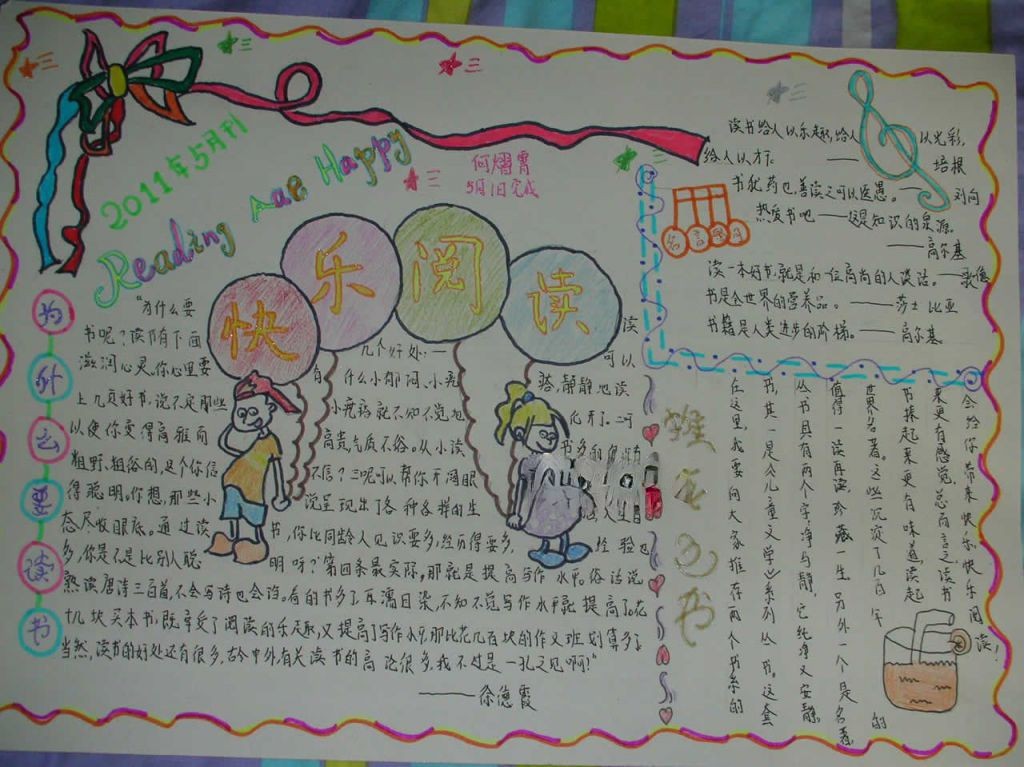 2011年5月刊
Reading Happy
何熠霄
5月1日完成
快乐阅读
为什么要读书
"为什么要读
书呢？读书有下面几个好处:一可以
滋润心灵,你心里要有什么小郁闷、小
上几页好书,说不定那些小疙瘩就不知不觉地化开了.二可
以使你变得高雅而高贵,气质不俗.从小读书多的
粗野、粗俗的,这个你信不信？三呢可以帮你开阔眼
得聪明.你想,那些小说呈现出了各种各样的
态尽收眼底。通过读书,你比同龄人见识要多,经历得要多,经验也
多,你是不是比别人聪明呀？第四条最实际,那就是提高写作水平,俗话说
熟读唐诗三百首,不会写诗也会诌。看的书多了,耳濡目染,不知不觉写作水平就提高了.花
十几块买本书,既享受了阅读的乐趣,又提高了写作水平,那比花几百块的作文班划算多了
当然,读书的好处还有很多,古今中外有关读书的高论很多,我不过是一孔之见啊!"
——徐德霞
名言
读书给人以乐趣,给人以光彩,
给人以才干. ——培根
书犹药也,善读之可以医愚。——刘向
热爱书吧——这是知识的泉源。
——高尔基
读一本好书,就是和一位高尚的人谈话。——歌德
书是全世界的营养品。——莎士比亚
书籍是人类进步的阶梯。——高尔基
会给你带来快乐,快乐阅读!
来更有感觉,总而言之,读书
书捧起来更有味道,读起
世界名著。这些沉淀了几百年的
值得一读再读,珍藏一生.另外一个是名著,
丛书具有两个字:净与静,它纯净又安静,
书,其一是《儿童文学》系列丛书。这套
在这里,我要向大家推荐两个书系的